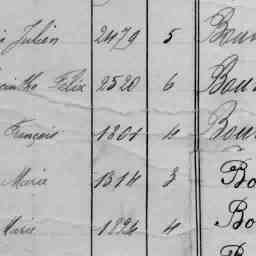 Julien 2479 5 Bou
Félix 2520 6 Bou
François 1801 4 Bou
Marie 1514 3 Bo
Marie 1826 4 Bo